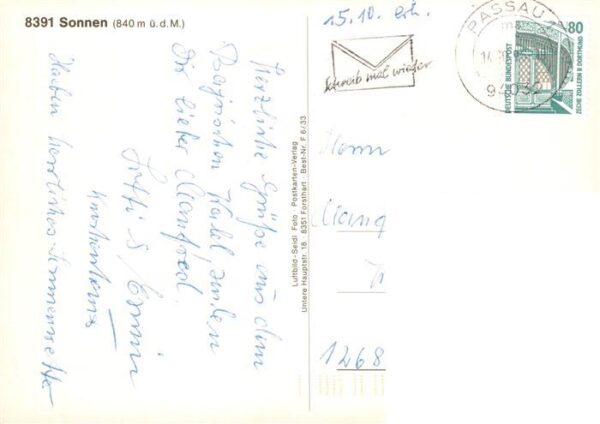 8391 Sonnen (840 m ü.d.M.)
Herzliche Grüße aus dem
Bayrischen Wald senden
dir lieber Manfred
Erwin
Haben herrliches Sonnenwetter
Luftbild-Seidl Foto - Postkarten-Verlag
Untere Hauptstr. 18 · 8351 Forsthart · Best-Nr. F 6/33
15.10. erh.
Schreib mal wieder
PASSAU
94032
80
DEUTSCHE BUNDESPOST
ZECHE ZOLLERN II DORTMUND
Herrn
1268